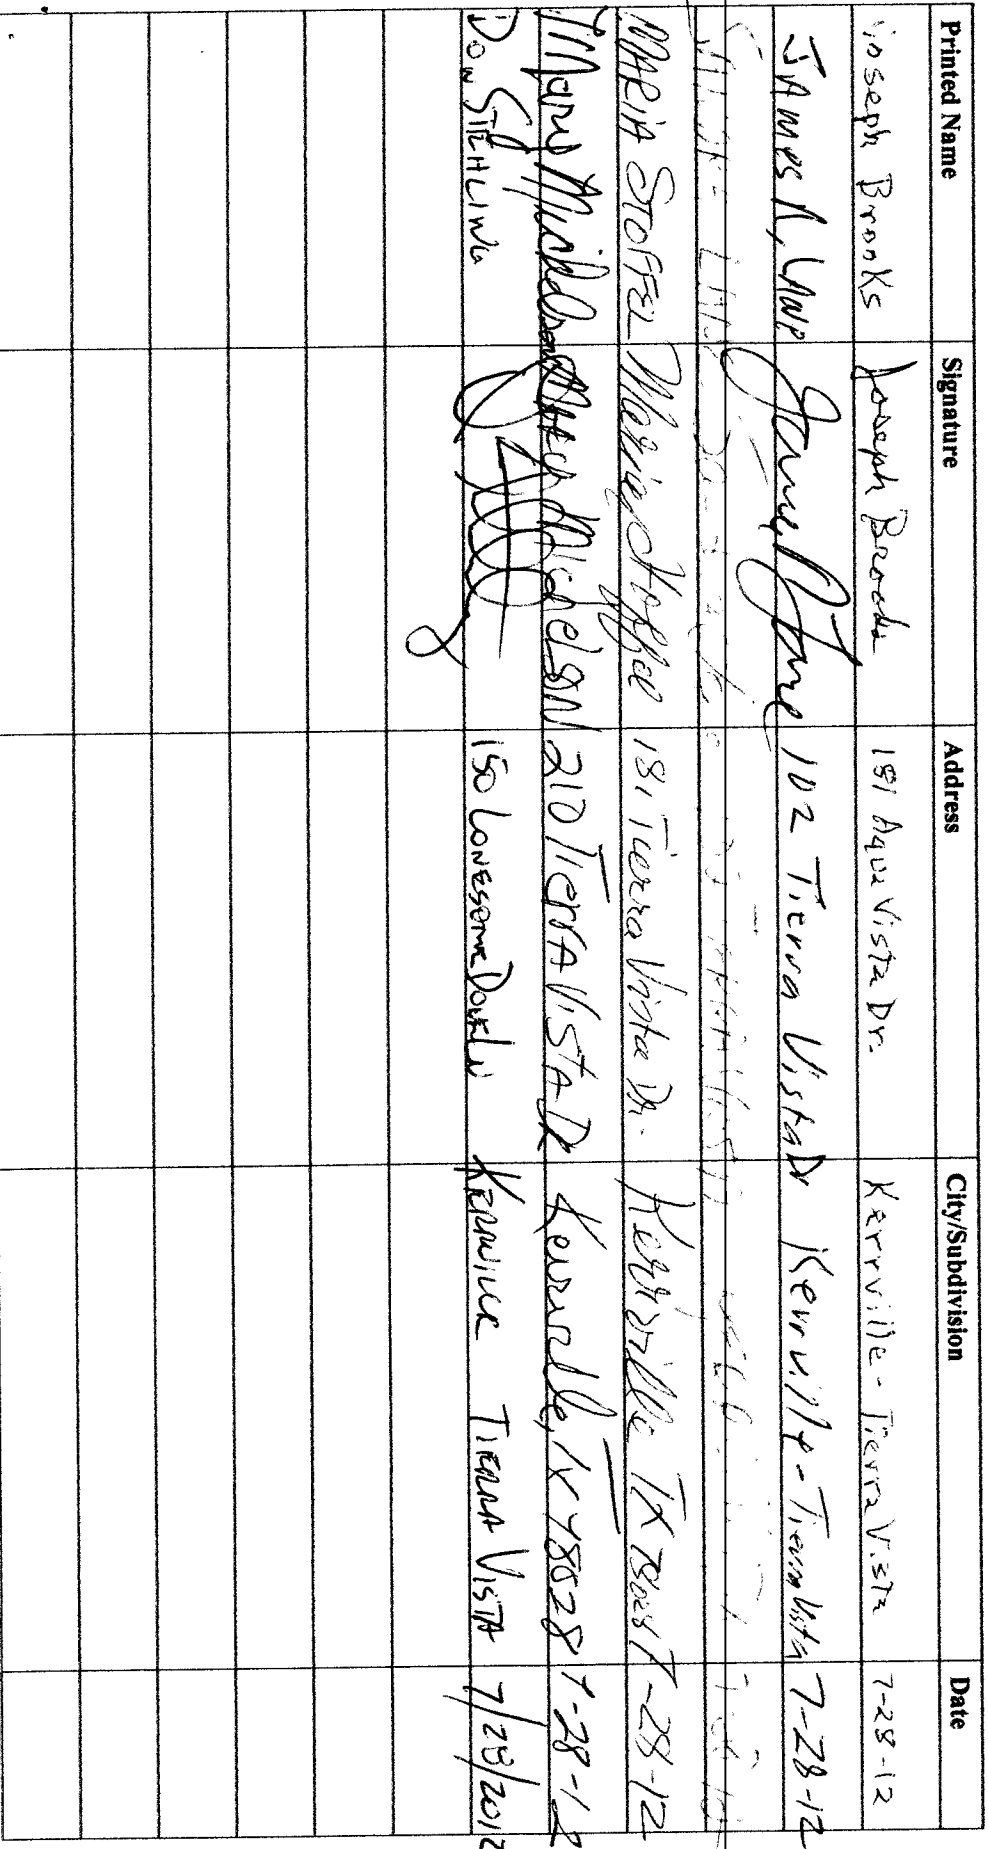 Printed Name Signature Address City/Subdivision Date
Joseph Brooks Joseph Brooks 151 Aqua Vista Dr. Kerrville - Tierra Vista 7-28-12
JAMES R. LANE 102 Tierra Vista Dr Kerrville - Tierra Vista 7-28-12
MARIA STOFFEL Maria Stoffel 181 Tierra Vista Dr. Kerrville TX 78028 7-28-12
Mary Michelson Mary Michelson 210 Tierra Vista Dr Kerrville, Tx 78028 7-28-12
DON STEHLING 150 LONESOME DOVE LN KERRVILLE TIERRA VISTA 7/28/2012